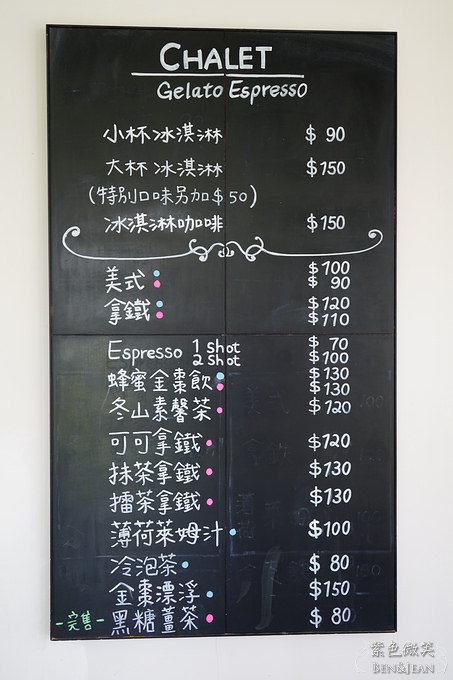 CHALET
Gelato Espresso
小杯冰淇淋 $ 90
大杯冰淇淋 $150
(特別口味另加$50)
冰淇淋咖啡 $150
美式 $100
$ 90
拿鐵 $120
$110
Espresso 1 shot $ 70
2 shot $100
蜂蜜金棗飲 $130
$130
冬山素馨茶 $120
可可拿鐵 $120
抹茶拿鐵 $130
擂茶拿鐵 $130
薄荷萊姆汁 $100
冷泡茶 $ 80
金棗漂浮 $150
-完售- 黑糖薑茶 $ 80
紫色微笑
BEN&JEAN